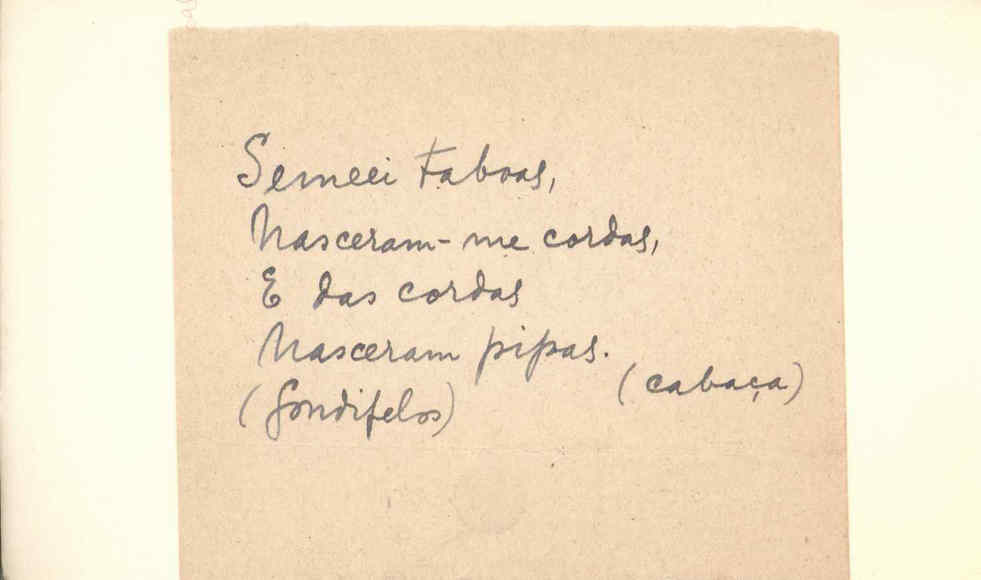 Semeei taboas,
Nasceram-me cordas,
E das cordas
Nasceram pipas.
(cabaça)
(Gondifelos)